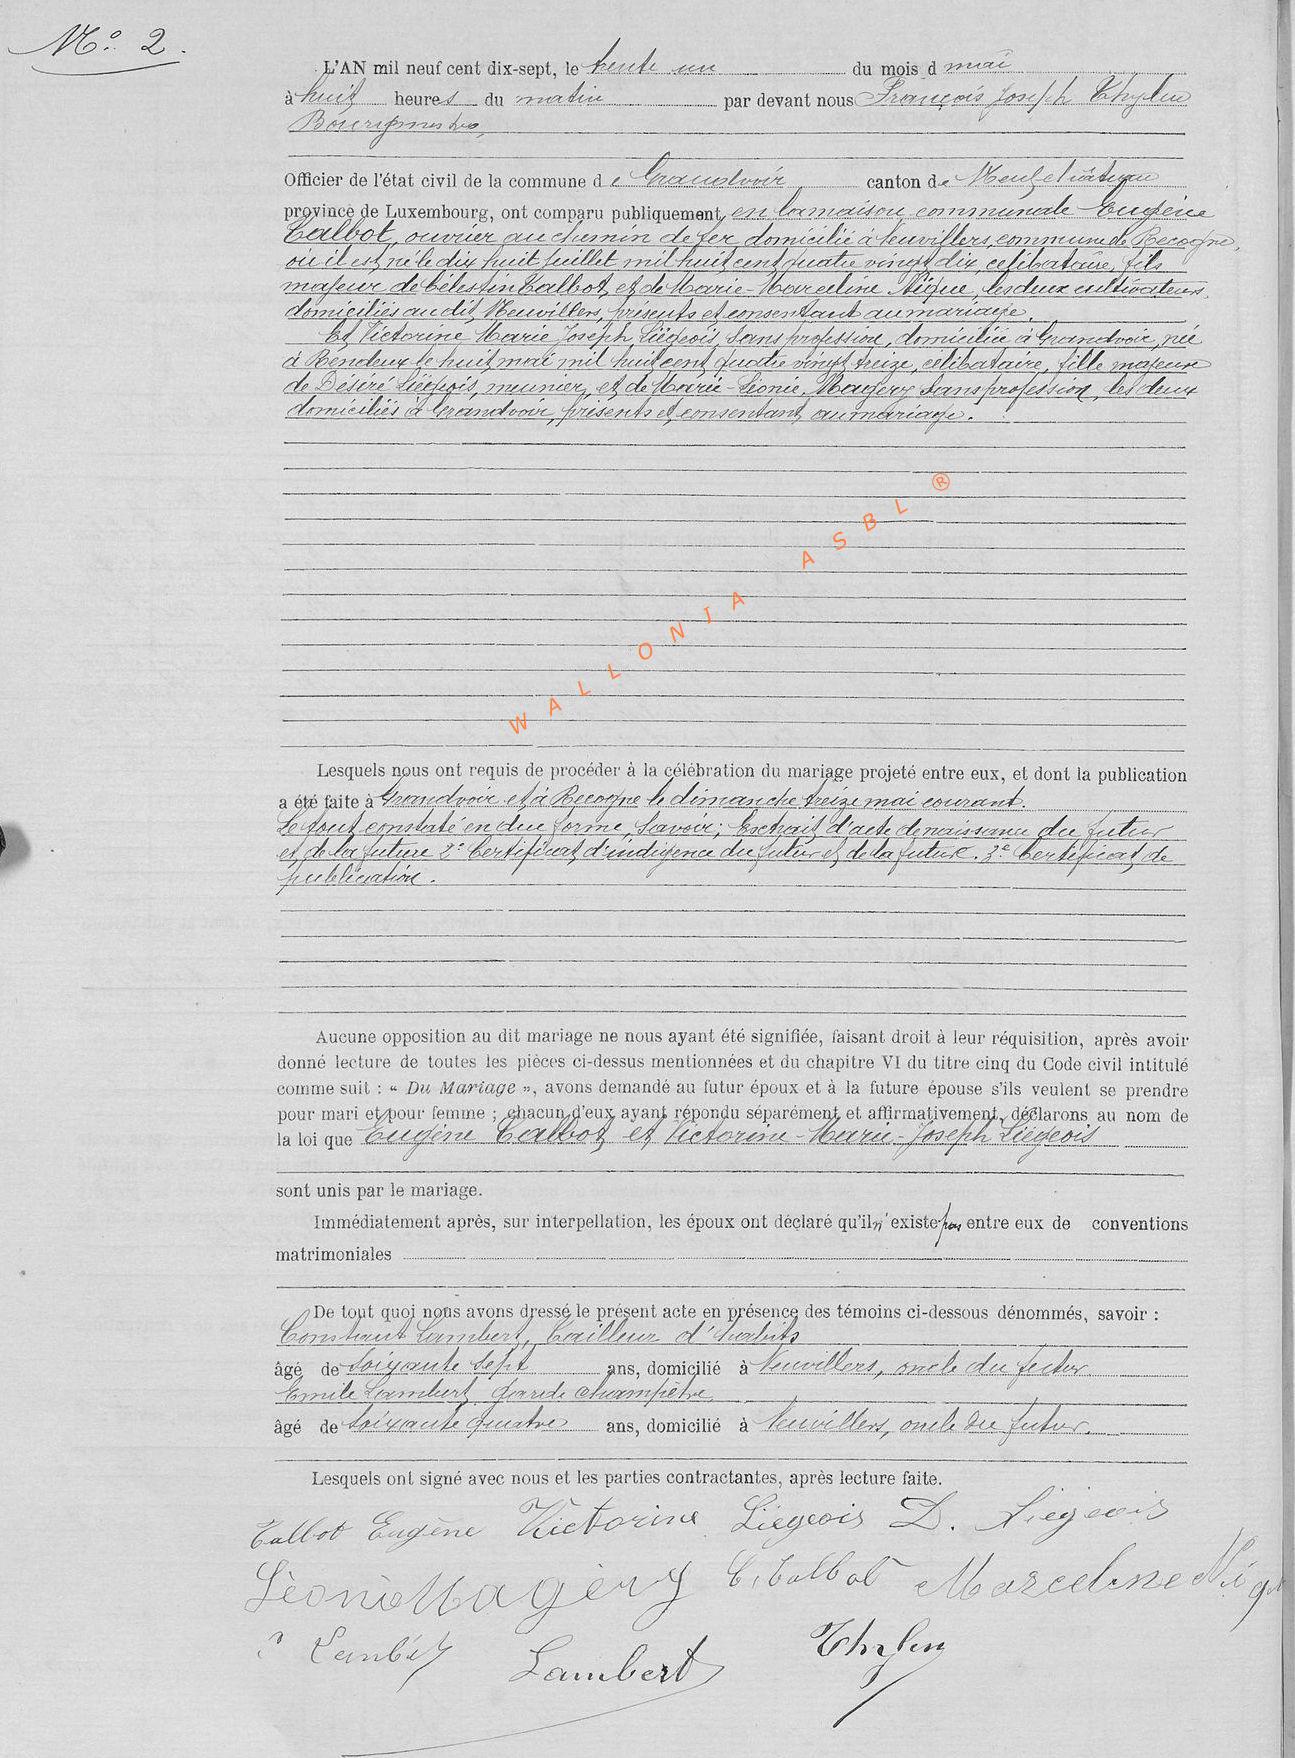 No. 2.
L'AN mil neuf cent dix-sept, le trente un du mois d mai
à huit heures du matin par devant nous François Joseph Thylen
Bourgmestre,
Officier de l'état civil de la commune de Grandvoir canton de Neufchâteau
province de Luxembourg, ont comparu publiquement, en la maison communale Eugène
Talbot, ouvrier au chemin de fer domicilié à Neuvillers, commune de Recogne,
où il est né le dix huit juillet mil huit cent quatre vingt dix, célibataire, fils
majeur de Célestin Talbot et de Marie-Marceline Nique, les deux cultivateurs,
domiciliés au dit Neuvillers, présents et consentant au mariage.
Et Victorine Marie Joseph Liégeois, sans profession, domiciliée à Grandvoir, née
à Rendeux le huit mai mil huit cent quatre vingt treize, célibataire, fille majeure
de Désiré Liégeois, meunier, et de Marie-Léonie Magery sans profession, les deux
domiciliés à Grandvoir, présents et consentant au mariage.
WALLONIA ASBL ®
Lesquels nous ont requis de procéder à la célébration du mariage projeté entre eux, et dont la publication
a été faite à Grandvoir et à Recogne le dimanche treize mai courant.
Le tout constaté en due forme, savoir; Extrait d'acte de naissance du futur
et de la future 2° Certificat d'indigence du futur et de la future. 3° Certificat de
publication.
Aucune opposition au dit mariage ne nous ayant été signifiée, faisant droit à leur réquisition, après avoir
donné lecture de toutes les pièces ci-dessus mentionnées et du chapitre VI du titre cinq du Code civil intitulé
comme suit : « Du Mariage », avons demandé au futur époux et à la future épouse s'ils veulent se prendre
pour mari et pour femme ; chacun d'eux ayant répondu séparément et affirmativement, déclarons au nom de
la loi que Eugène Talbot et Victorine-Marie-Joseph Liégeois
sont unis par le mariage.
Immédiatement après, sur interpellation, les époux ont déclaré qu'il n'existe pas entre eux de conventions
matrimoniales
De tout quoi nous avons dressé le présent acte en présence des témoins ci-dessous dénommés, savoir :
Constant Lambert, Tailleur d'habits
âgé de soixante sept ans, domicilié à Neuvillers, oncle du futur
Emile Lambert garde champêtre
âgé de soixante quatre ans, domicilié à Neuvillers, oncle du futur.
Lesquels ont signé avec nous et les parties contractantes, après lecture faite.
Talbot Eugène Victorine Liégeois D. Liégeois
Léonie Magery C. Talbot Marceline Niq
Lambert Lambert Thylen